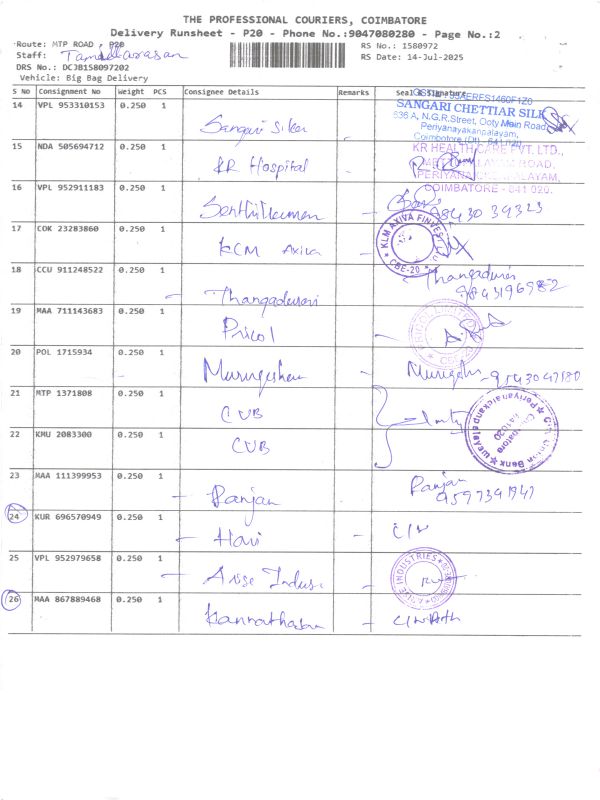 THE PROFESSIONAL COURIERS, COIMBATORE
Delivery Runsheet - P20 - Phone No.:9047080280 - Page No.:2
Route: MTP ROAD , P20
RS No.: I580972
Staff: Tamilarasan
RS Date: 14-Jul-2025
DRS No.: DCJB158097202
Vehicle: Big Bag Delivery
S No Consignment No Weight PCS Consignee Details Remarks Seal & Signature
14 VPL 953310153 0.250 1 Sangari Silks
SANGARI CHETTIAR SILK
636 A, N.G.R.Street, Ooty Main Road,
Periyanayakanpalayam,
15 NDA 505694712 0.250 1 KR Hospital
KR HEALTH CARE PVT. LTD.,
PERIYANAICKENPALAYAM,
COIMBATORE - 641 020.
16 VPL 952911183 0.250 1 Senthilkumar -
98430 39323
17 COK 23283860 0.250 1 KCM Axiva -
KLM AXIVA FINVEST
CBE-20
18 CCU 911248522 0.250 1 - Thangadurai
Thangadurai
9843196982
19 MAA 711143683 0.250 1 Pricol -
PRICOL LIMITED
20 POL 1715934 0.250 1 Murugesan -
21 MTP 1371808 0.250 1 CUB
22 KMU 2083300 0.250 1 CUB
Coimbatore
641020
23 MAA 111399953 0.250 1 - Ranjan
Ranjan
24 KUR 696570949 0.250 1 - Hari -
25 VPL 952979658 0.250 1 - Arise Indus -
INDUSTRIES
26 MAA 867889468 0.250 1 Kannathasan -